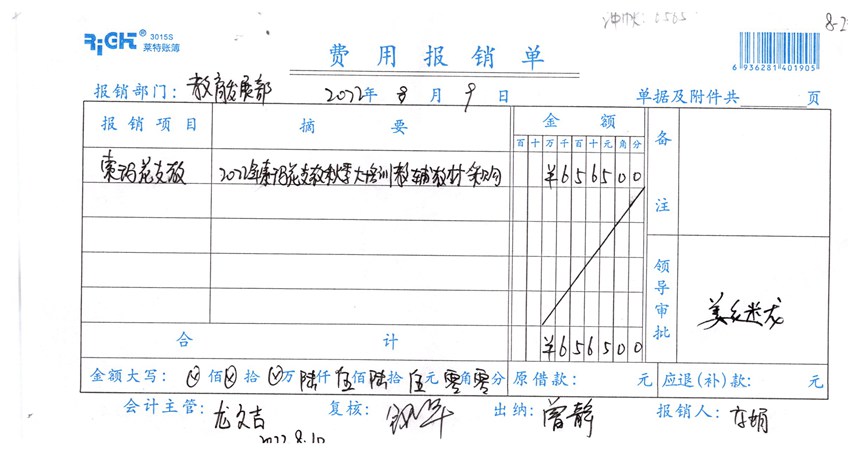 RiGHT® 3015S 莱特账簿
费用报销单
6 936281 401905
报销部门：教育发展部 2022年 8月 9日 单据及附件共 页
报销项目 摘要 金额 备注
百十万千百十元角分
索玛花支教 2022年索玛花支教秋季大培训教辅教材采购 ¥656500
领导审批
合计 ¥656500
金额大写： 佰 拾 万陆仟伍佰陆拾伍元零角零分 原借款： 元 应退(补)款： 元
会计主管：龙文吉 复核： 出纳：曾静 报销人：
2022.8.10